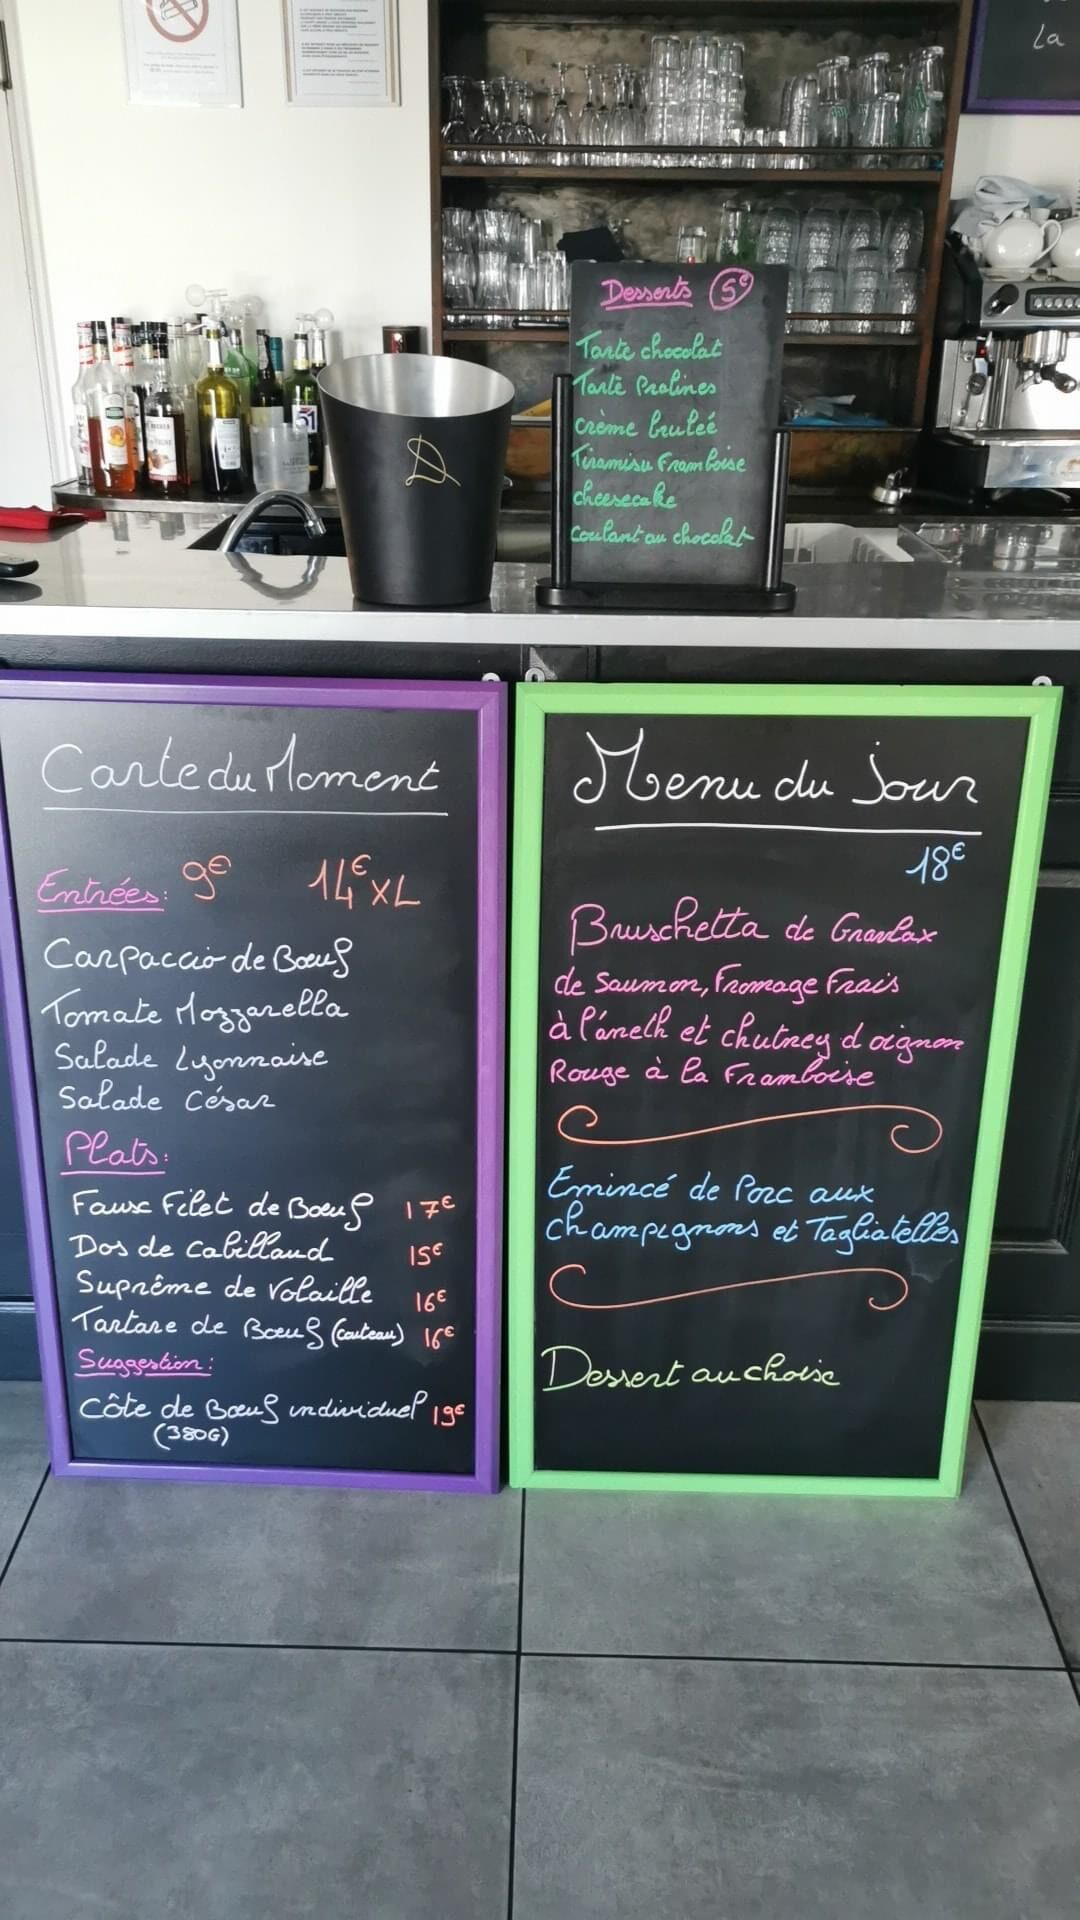 La
Desserts 5€
Tarte chocolat
Tarte Pralines
crème bruleé
Tiramisu Framboise
cheesecake
coulant au chocolat
51
Carte du Moment
Entrées: 9€ 14€ XL
Carpaccio de Bœuf
Tomate Mozzarella
Salade Lyonnaise
Salade César
Plats:
Faux Filet de Bœuf 17€
Dos de Cabillaud 15€
Suprême de Volaille 16€
Tartare de Bœuf (couteau) 16€
Suggestion:
Côte de Bœuf individuel 19€
(380G)
Menu du Jour
18€
Bruschetta de Gravlax
de Saumon, Fromage Frais
à l'áneth et chutney d oignon
Rouge à la Framboise
Emincé de Porc aux
champignons et Tagliatelles
Dessert au choix